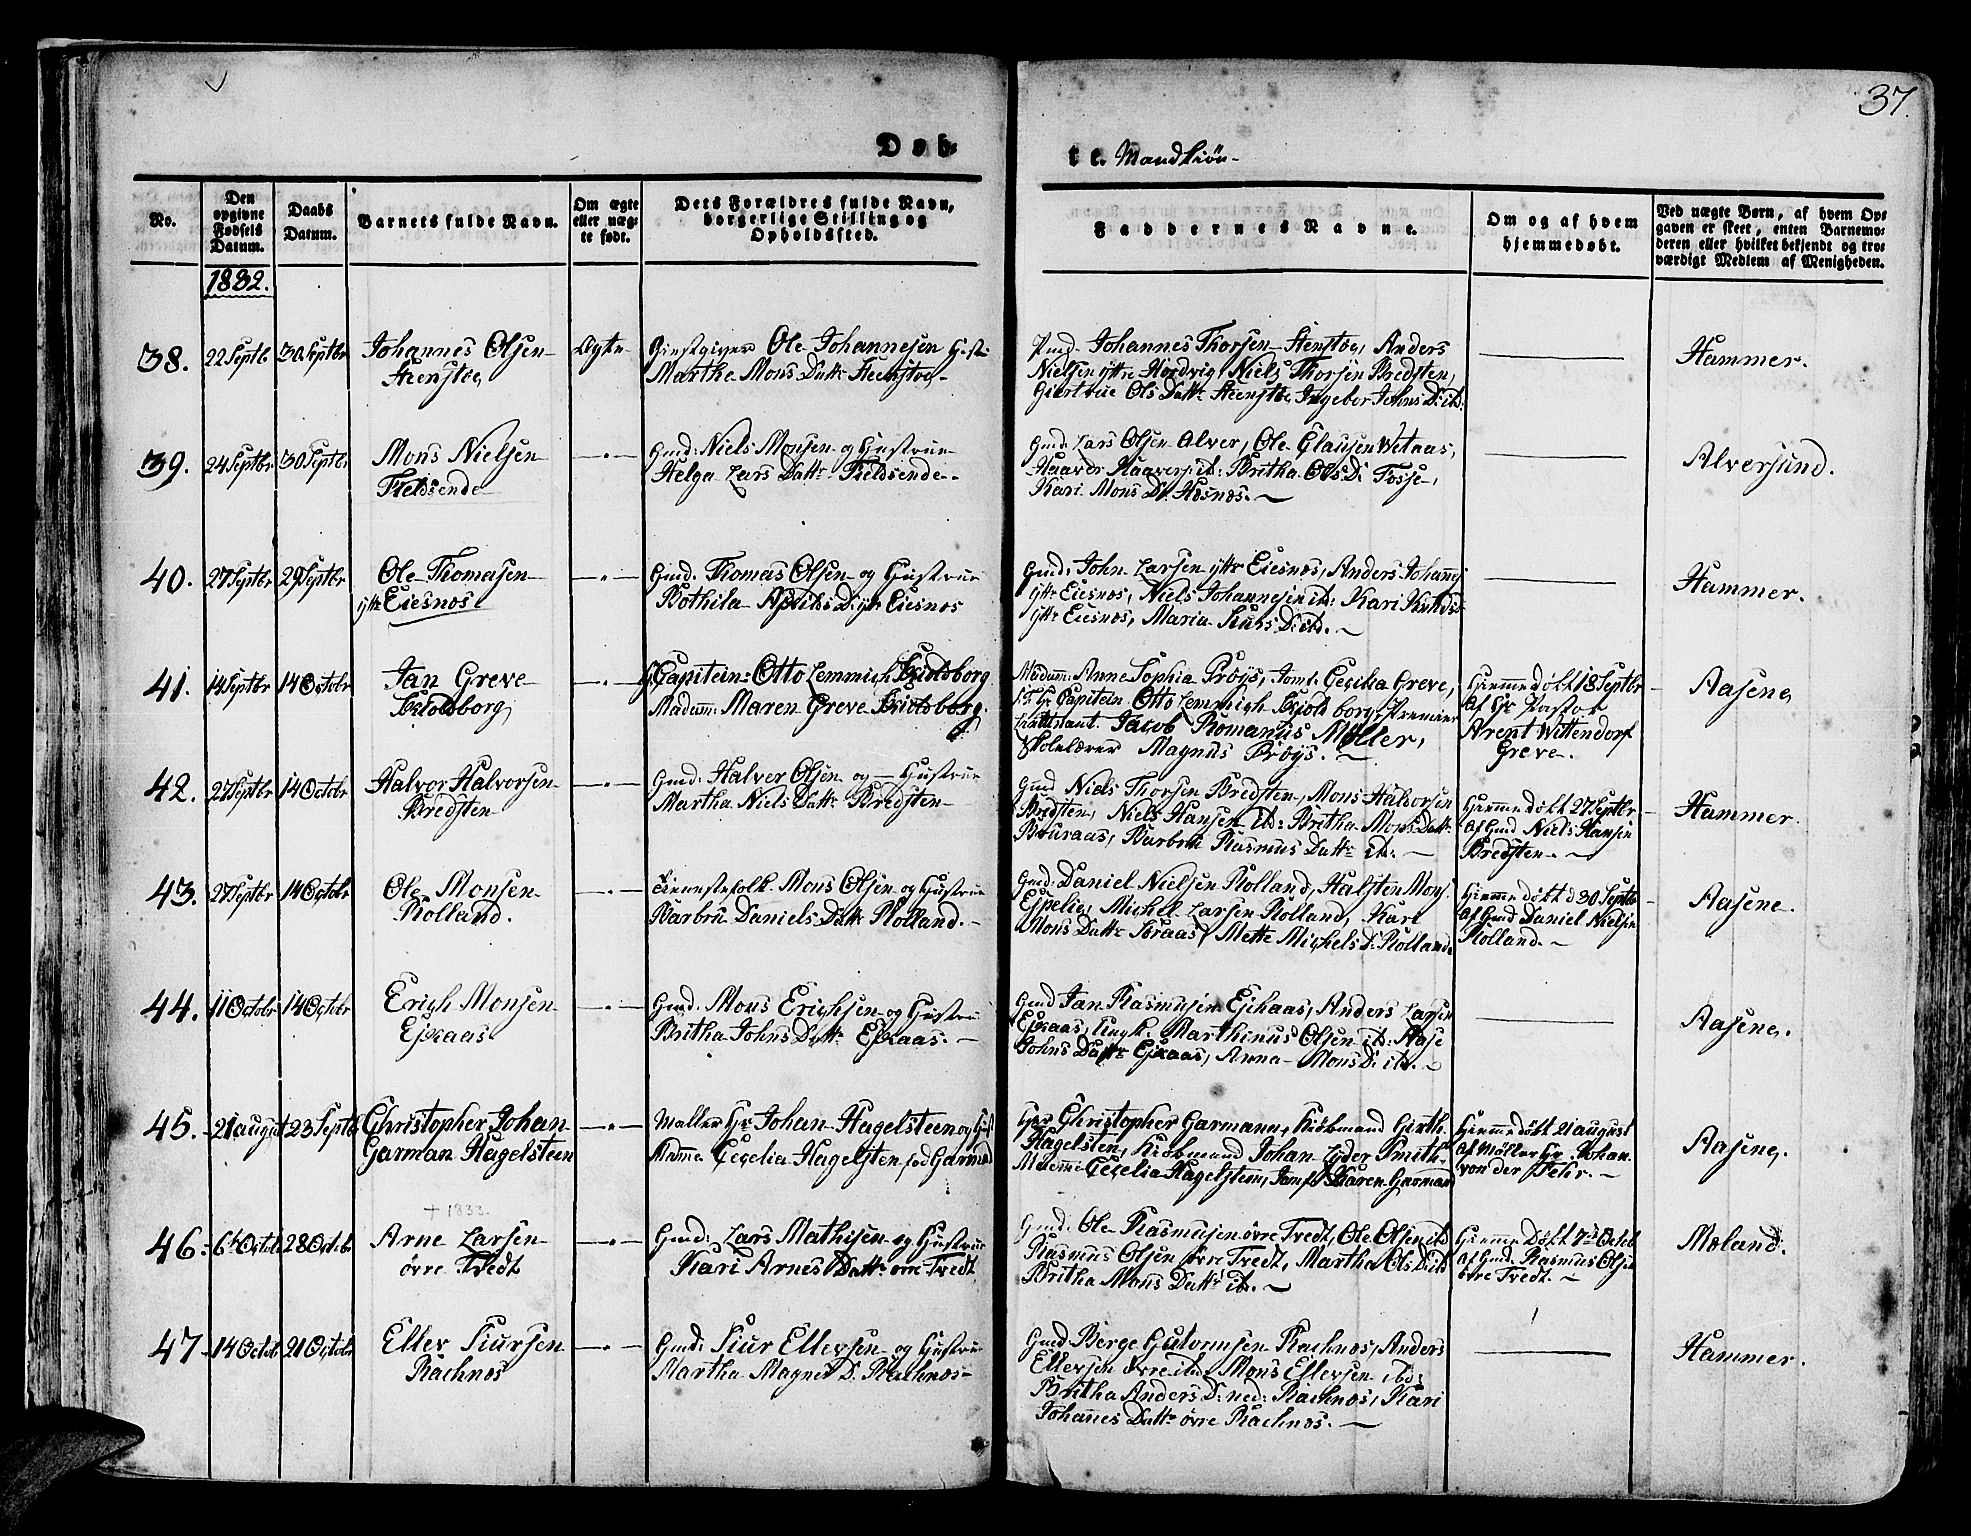 37.
Døb-
te. Mandkiøn-
No.
Den opgivne Fødsels Datum.
Daabs Datum.
Barnets fulde Navn.
Om ægte eller uæg-te født.
Dets Forældres fulde Navn, borgerlige Stilling og Opholdssted.
Faddernes Navne.
Om og af hvem hjemmedøbt.
Ved uægte Børn, af hvem Op-
gaven er skeet, enten Barnemo-
deren eller hvilket bekjendt og tro-
værdigt Medlem af Menigheden.
1832.
38. 22 Septb 30 Septbr Johannes Olsen Ægte Giestgiver Ole Johannesen Hustr
Steenstøe Marthe Mons Datt: Steenstøe-
Johannes Thorsen Steenstøe, Anders
Nielsen yttre Hordvig, Niels Thorsen Bredsten,
Giertrue Ols Datt: Steenstøe, Ingebor Johns D: ib:
Hammer.
39. 24 Septbr 30 Septbr Mons Nielsen Gmd: Niels Monsen og Hustrue
Fieldsende Helga Lars Datt: Fieldsende-
Gmd: Lars Olsen Alver, Ole Clausen Wetaas,
Haaver Haavers ib: Britha Ols D: Fosse,
Kari Mons D: Hosnøs.
Alversund.
40. 27 Septbr 29 Septbr Ole Thomasen Gmd: Thomas Olsen og Hustrue
yttr Eiesnøs Bothila Nels D: yttr Eiesnøs
Gmd: John Larsen yttr Eiesnøs, Anders Johannes
yttr Eiesnøs, Niels Johannesen ib: Kari Knuds
yttr Eiesnøs, Maria D: ib.
Hammer.
41. 14 Septbr 14 Octobr Jan Greve Capitein Otto Lemmich Kioldborg
Kioldborg Madam: Maren Greve Kioldborg.
Madam: Anne Sophia Prøys, Jomf. Cecilia Greve,
Capitein Otto Lemmich Kioldborg, Premier
Leutenant Jacob Romanus Møller,
Skolelærer Magnus Prøys.
Hiemmedøbt 18 Septbr
Af Hr Pastor
Arent Wittendorf
Greve.
Aasene,
42. 27 Septbr 14 Octobr Halvor Halvorsen Gmd: Halver Olsen og Hustrue
Bredsten Martha Niels Datt: Bredsten
Gmd Niels Thorsen Bredsten, Mons Haldorsen
Bredsten, Niels Hansen ib: Britha Mons Datt:
Bouraas, Barbru Rasmus Datt: ib:
Hiemmedøbt 27 Septbr
Af Gmd Niels Hansen
Bredsten.
Hammer.
43. 27 Septbr 14 Octobr Ole Monsen Tienestefolk Mons Olsen og Hustrue
Rolland. Barbru Daniels Datt: Rolland.
Gmd: Daniel Nielsen Rolland, Halsten Mons
Espelie, Michel Larsen Rolland, Kari
Mons Datt: Toraas, Mette Michels D: Rolland.
Hiemmedøbt d 30 Septbr
Af Gmd Daniel Nielsen
Rolland.
Aasene.
44. 11 Octobr 14 Octobr Erich Monsen Gmd: Mons Erichsen og Hustru
Ejkaas Britha Johns Datt: Ejkaas.
Gmd Jan Rasmusen Ejkaas, Anders Larsen
Ejkaas, Ungk: Marthinus Olsen ib: Aase
Johns Datt: Ejkaas, Anna Mons D: ib.
Aasene,
45. 21 august 23 Septb Christopher Johan Møller Hr Johan Hagelsteen og Hust
Garman Hagelsteen Cecelia Hagelsten fød Garman
Hr Christopher Garmann, Kiøbmand Girth
Hagelsten, Kiøbmand Johan Lyder Smith
Madame Cecelia Hagelsteen, Jomf Karen Garman
Hiemmedøbt 21 august
Af Møller Hr Johan
von der Fehr.
Aasene,
+ 1833.
46. 6te Octob 28 Octobr Arne Larsen Gmd: Lars Mathisen og Hustrue
øvre Tvedt Kari Arnes Datt: øvre Tvedt
Gmd: Ole Rasmusen øvre Tvedt, Ole Olsen ib
Rasmus Olsen øvre Tvedt, Martha Ols D: ib
Britha Mons Datt: ib.
Hiemmedøbt 7de Octob
Af Gmd: Rasmus Olsen
øvre Tvedt.
Mæland.
47 14 Octob 21 Octobr Eller Siursen Gmd: Siur Ellersen og Hustrue
Rachnøs Martha Magne D. Rachnøs-
Gmd: Berge Rachnøs, Anders
Ellersen øvre ib, Mons Ellersen ib:
Britha Anders D: ned: Rachnøs, Kari
Johannes Datt: øvre Rachnøs.
Hammer.